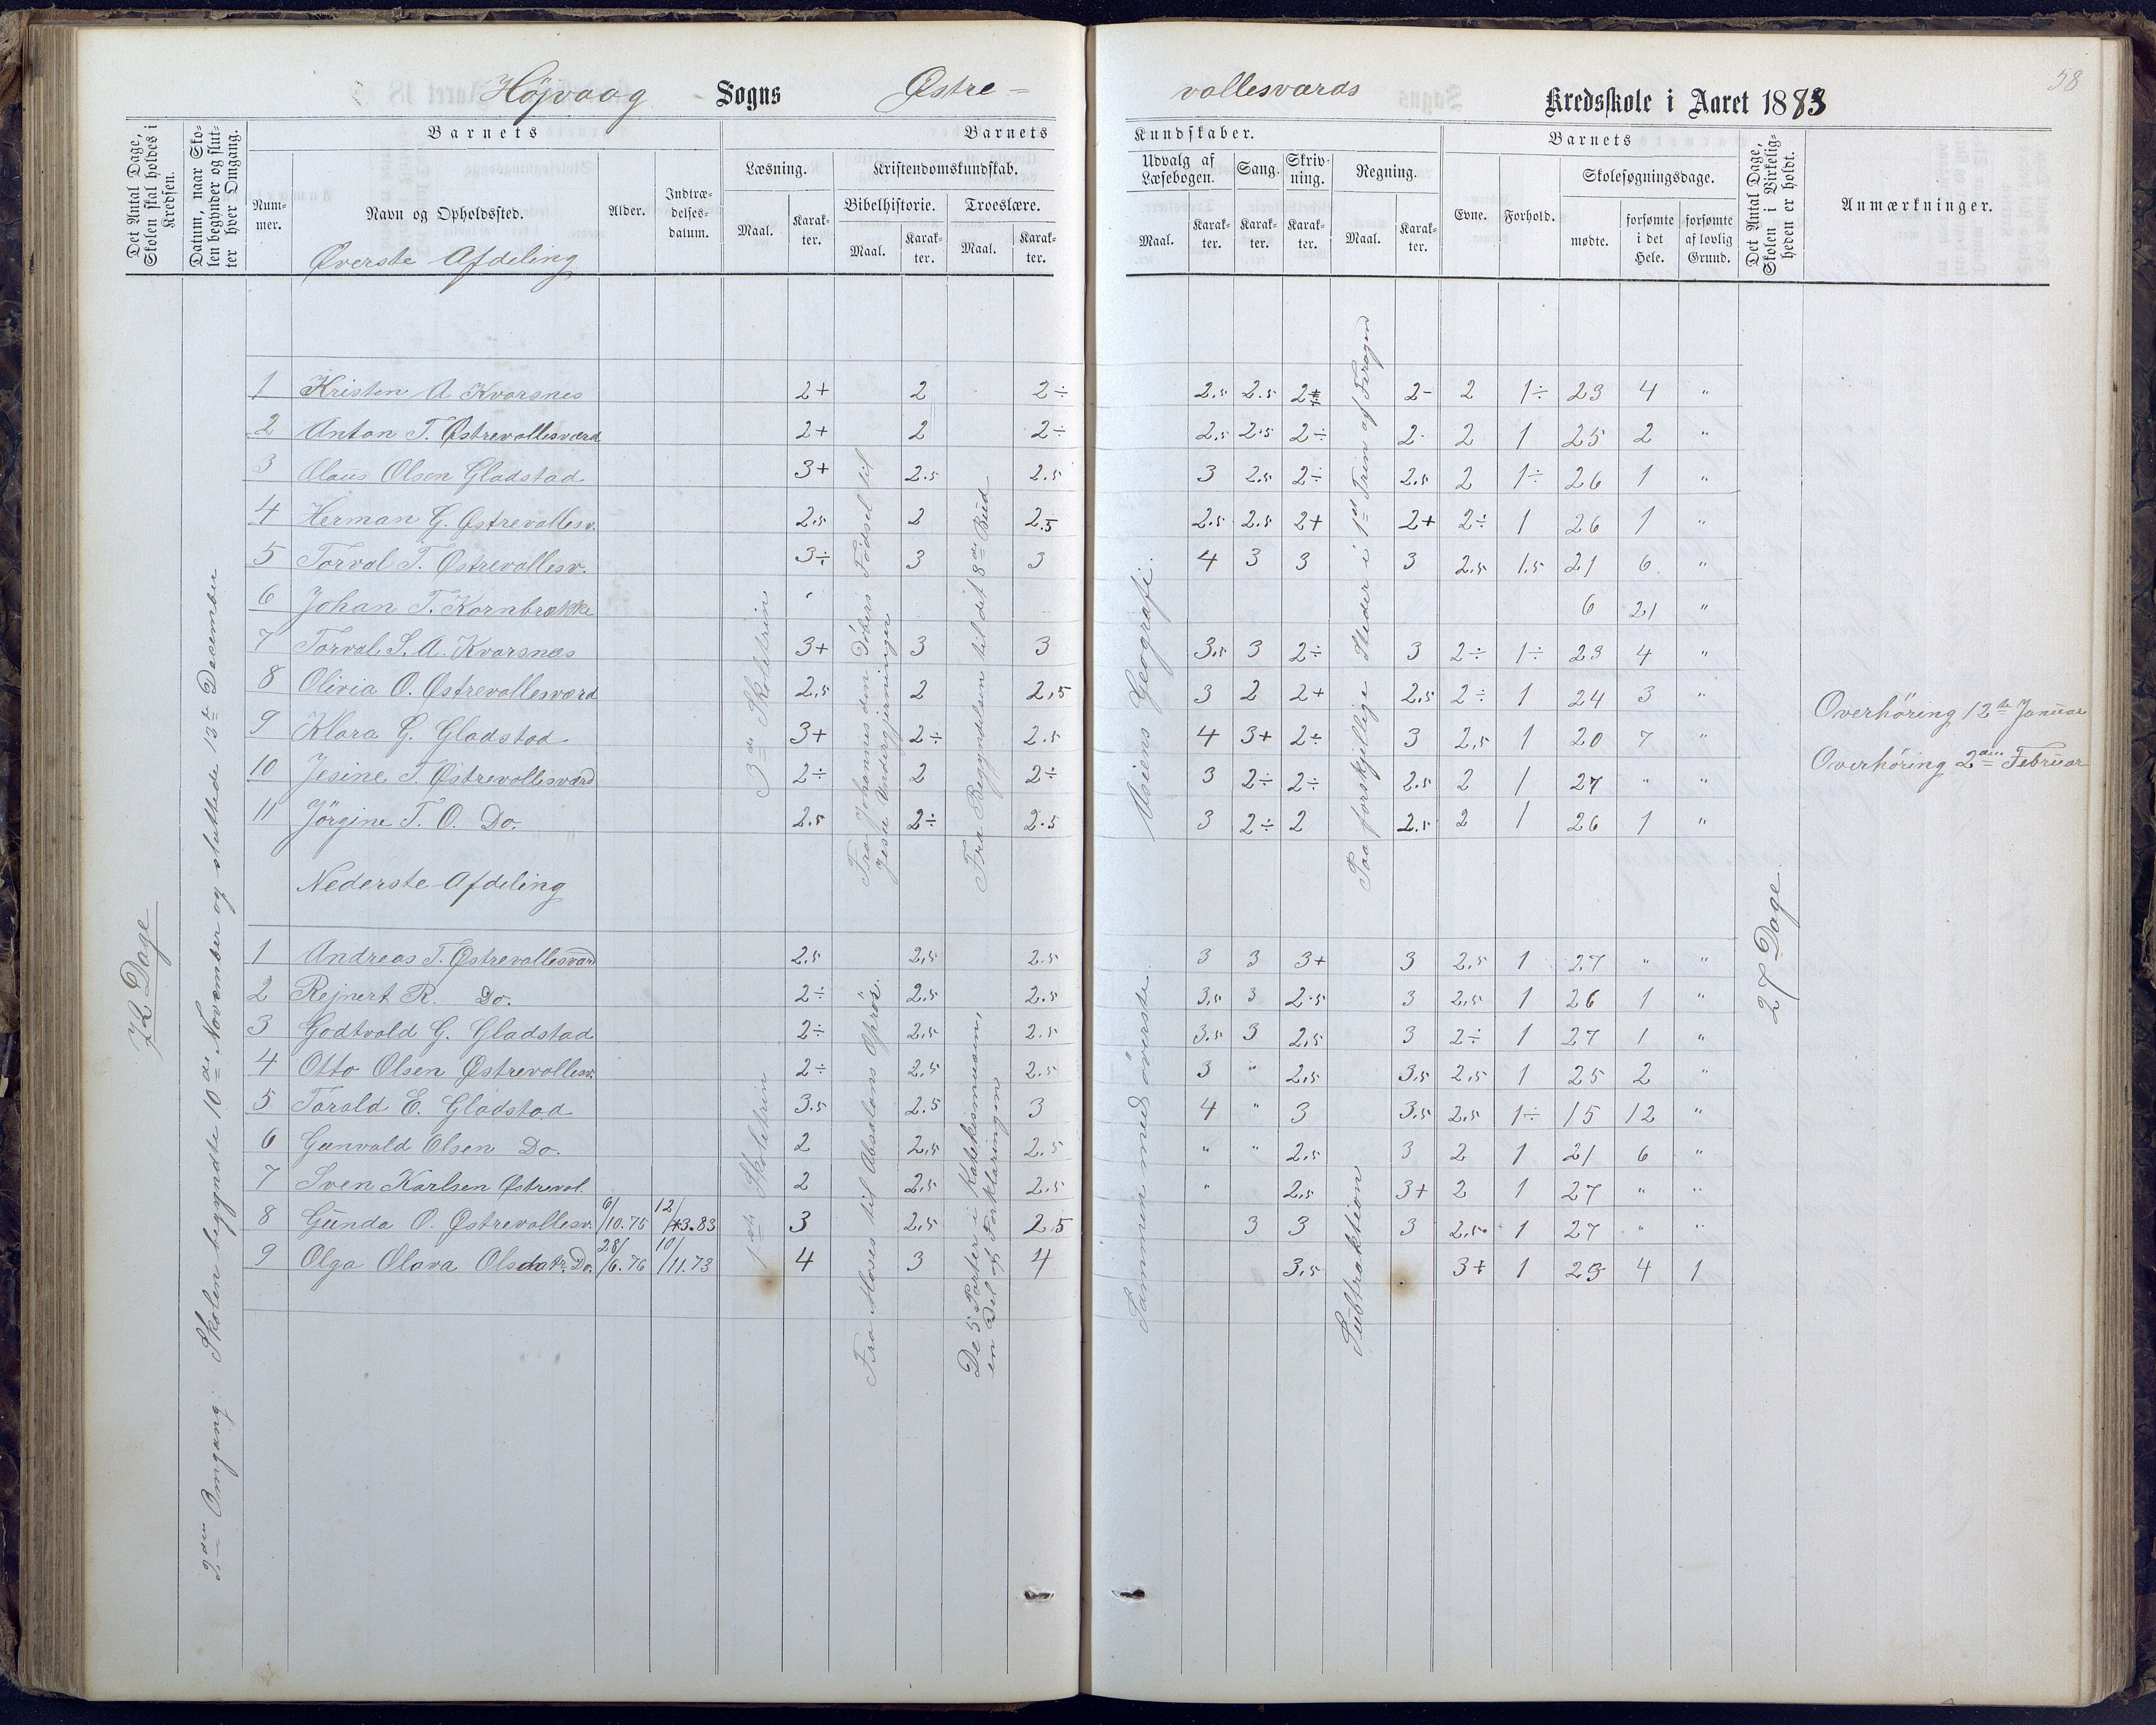 58
Højvaag Sogns Østre-
vallesværds Kredsskole i Aaret 1883
Det Antal Dage, Skolen skal holdes i Kredsen.
Datum, naar Skolen begynder og slutter hver Omgang.
Barnets
Nummer.
Navn og Opholdssted.
Alder.
Indtrædelsesdatum.
Barnets
Læsning.
Maal.
Karakter.
Kristendomskundskab.
Bibelhistorie.
Maal.
Karakter.
Troeslære.
Maal.
Karakter.
Kundskaber.
Udvalg af Læsebogen.
Maal.
Karakter.
Sang.
Karakter.
Skrivning.
Karakter.
Regning.
Maal.
Karakter.
Barnets
Evne.
Forhold.
Skolesøgningsdage.
mødte.
forsømte i det Hele.
forsømte af lovlig Grund.
Det Antal Dage, Skolen i Virkeligheden er holdt.
Anmærkninger.
Øverste Afdeling
1 Kristen A Kvarsnes 2+ 2 2÷ 2.5 2.5 2± 2- 2 1÷ 23 4 "
2 Anton T. Østrevallesværd 2+ 2 2÷ 2.5 2.5 2÷ 2- 2 1 25 2 "
3 Olaus Olsen Gladstad 3+ 2.5 2.5 3 2.5 2÷ 2.5 2 1÷ 26 1 "
4 Herman G. Østrevallesv. 2.5 2 2.5 2.5 2.5 2+ 2+ 2÷ 1 26 1 "
5 Torval T. Østrevallesv. 3÷ 3 3 4 3 3 3 2.5 1.5 21 6 "
6 Johan T. Kornbrække 6 21 "
7 Torval S. A. Kvarsnæs 3+ 3 3 3.5 3 2÷ 3 2÷ 1÷ 23 4 "
8 Olivia O. Østrevallesværd 2.5 2 2.5 3 2 2+ 2.5 2÷ 1 24 3 "
9 Klara G. Gladstad 3+ 2÷ 2.5 4 3+ 2÷ 3 2.5 1 20 7 "
10 Jesine T. Østrevallesværd 2÷ 2 2÷ 3 2÷ 2÷ 2.5 2 1 27 " "
11 Jörgine T. O. Do. 2.5 2÷ 2.5 3 2÷ 2 2.5 2 1 26 1 "
Nederste Afdeling
1 Andreas T. Østrevallesværd 2.5 2.5 2.5 3 3 3+ 3 2.5 1 27 " "
2 Rejnert R. Do. 2÷ 2.5 2.5 3.5 3 2.5 3 2.5 1 26 1 "
3 Godtvald G. Gladstad 2÷ 2.5 2.5 3.5 3 2.5 3 2÷ 1 27 1 "
4 Otto Olsen Østrevallesv. 2÷ 2.5 2.5 3 " 2.5 3.5 2.5 1 25 2 "
5 Torald E. Gladstad 3.5 2.5 3 4 " 3 3.5 2.5 1÷ 15 12 "
6 Gunvald Olsen Do. 2 2.5 2.5 " " 2.5 3 2 1 21 6 "
7 Sven Karlsen Østreval. 2 2.5 2.5 " 2.5 3+ 2 1 27 " "
8 Gunda O. Østrevallesv. 6/10.75 12/3.83 3 2.5 2.5 3 3 3 2.5 1 27 " "
9 Olga Olava Olsdatr. Do. 28/6.76 10/11.73 4 3 4 3.5 3+ 1 23 4 1
72 Dage
2den Omgang. Skolen begyndte 10de November og sluttede 13de December
3de Skoletrin
Fra Johannes den Døbers Fødsel til
Jesu Undergjerninger
Fra Begyndelsen til det 8de Bud
Asiens Geografi.
Paa forskjellige Steder i 1ste Trin af Forøgn
1ste Skoletrin
Fra Moses til Absalons Oprör.
De 5 Parter i Katekismusen,
en Del af Forklaringen
Sammen med överste.
Subtraktion
27 Dage
Overhöring 12te Januar
Overhöring 2den Februar